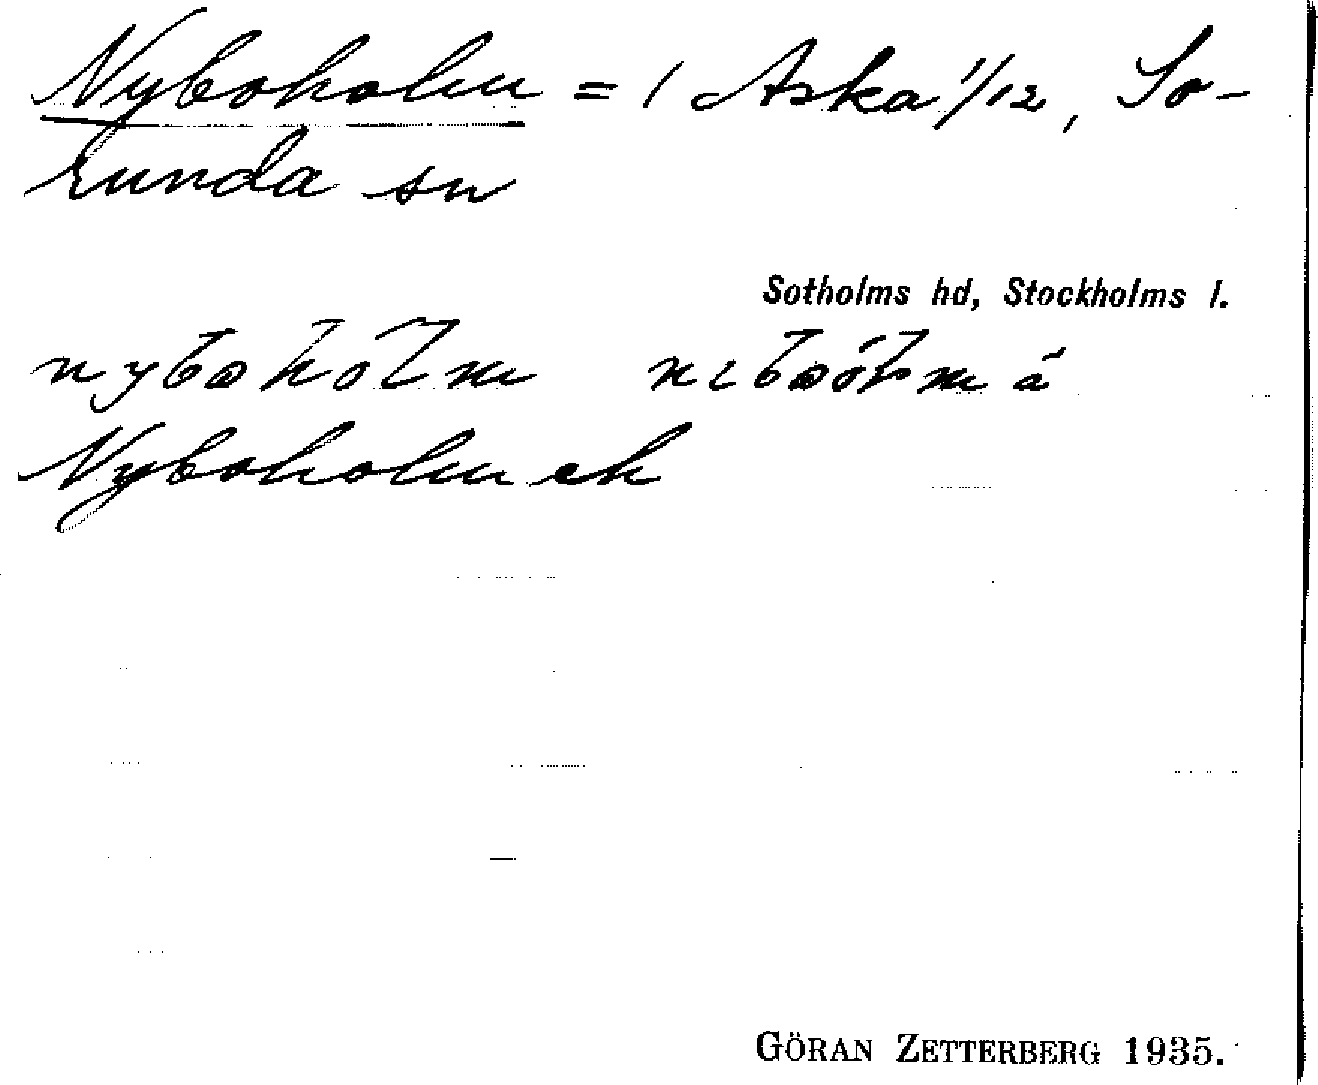 Nyboholm = 1 Aska 1/12, So-
runda sn
Sotholms hd, Stockholms l.
Nyboholm ek
GÖRAN ZETTERBERG 1935.